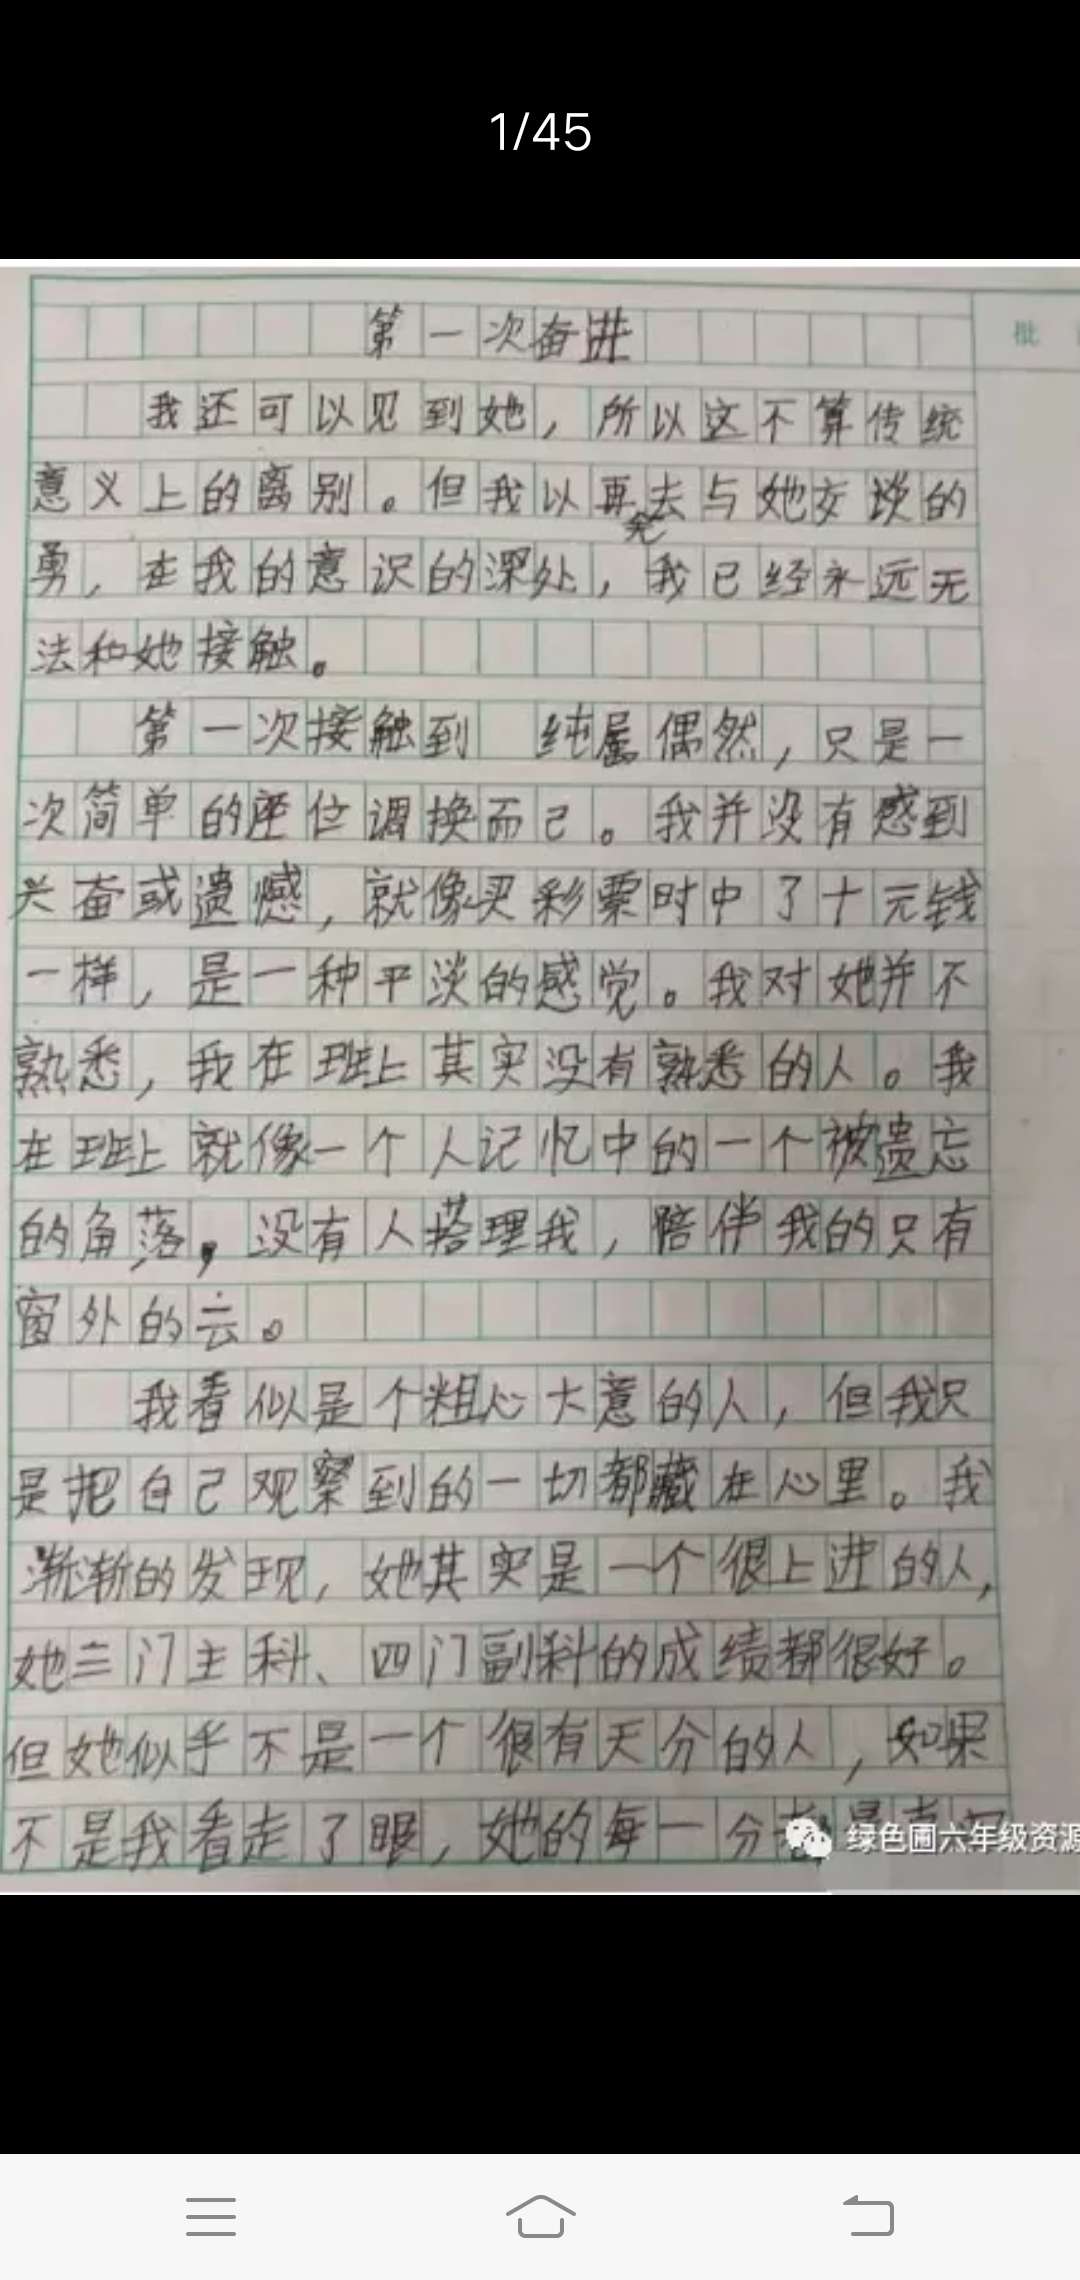 1/45
第一次奋进
批
我还可以见到她，所以这不算传统
意义上的离别。但我以再去与她交谈的
勇，在我的意识的深处，我已经永远无
法和她接触。
第一次接触到 纯属偶然，只是一
次简单的座位调换而己。我并没有感到
兴奋或遗憾，就像买彩票时中了十元钱
一样，是一种平淡的感觉。我对她并不
熟悉，我在班上其实没有熟悉的人。我
在班上就像一个人记忆中的一个被遗忘
的角落，没有人搭理我，陪伴我的只有
窗外的云。
我看似是个粗心大意的人，但我只
是把自己观察到的一切都藏在心里。我
渐渐的发现，她其实是一个很上进的人，
她三门主科、四门副科的成绩都很好。
但她似乎不是一个很有天分的人，如果
不是我看走了眼，她的每一分
绿色圃六年级资源